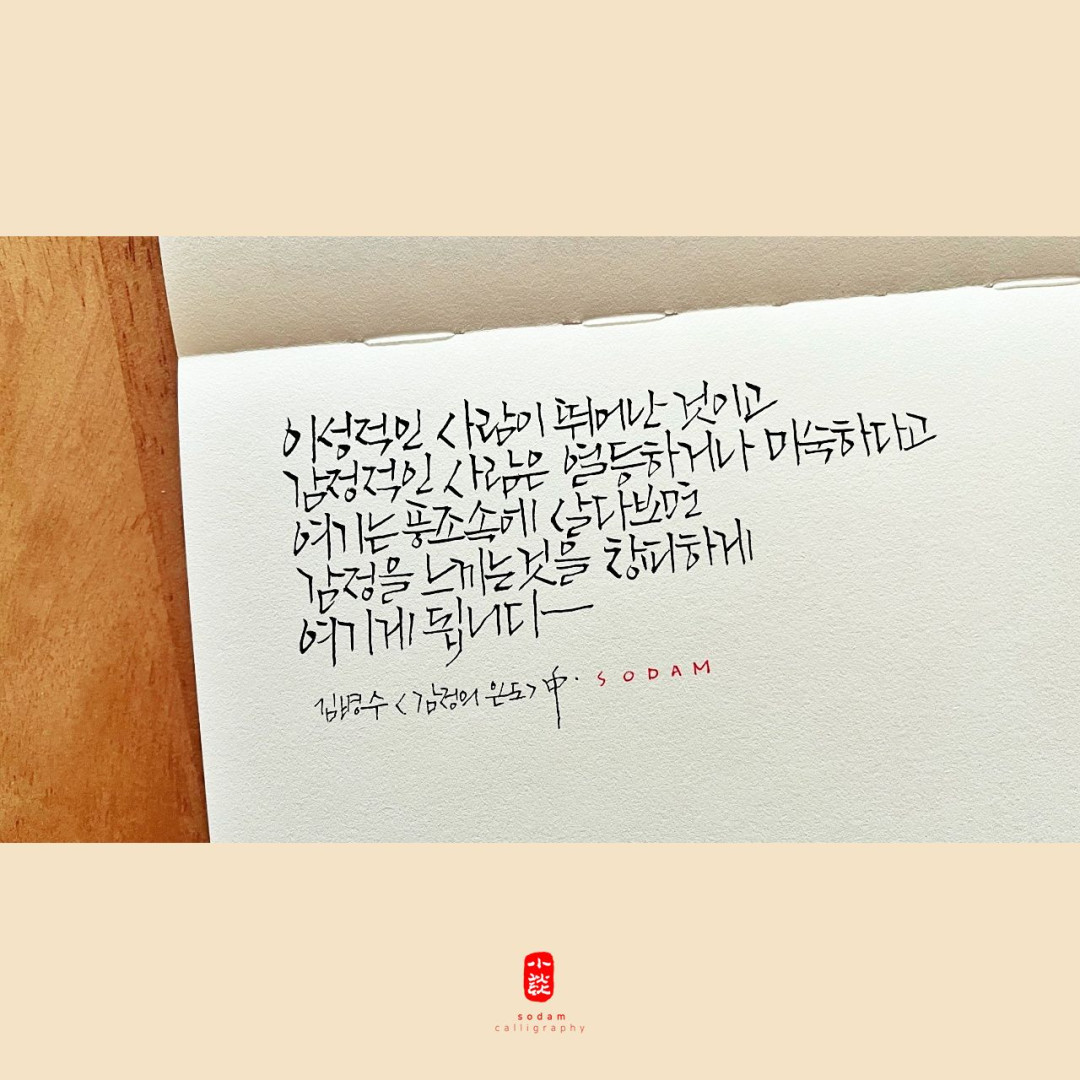 이성적인 사람이 뛰어난 것이고
감정적인 사람은 열등하거나 미숙하다고
여기는 풍조속에 살다보면
감정을 느끼는것을 창피하게
여기게 됩니다ー
김병수 <감정의 온도> 中. SODAM
小談
sodam
calligraphy